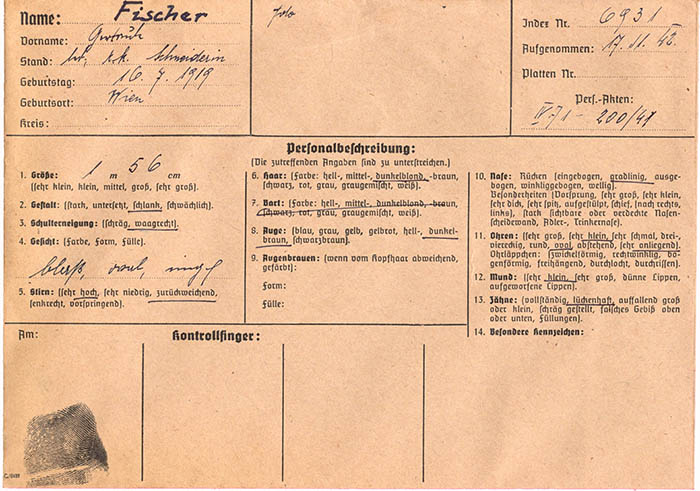 Name: Fischer
Vorname: Gertrude
Stand: led, r.k. Schneiderin
Geburtstag: 16. 7. 1919
Geburtsort: Wien
Kreis:
Index Nr. 6931
Aufgenommen: 17. 11. 42.
Platten Nr.
Pers.-Akten:
200/41
Personalbeschreibung:
(Die zutreffenden Angaben sind zu unterstreichen.)
1. Größe: 1 m 56 cm
(sehr klein, klein, mittel, groß, sehr groß).
2. Gestalt: (stark, untersetzt, schlank, schwächlich).
3. Schulterneigung: (schräg, waagrecht).
4. Gesicht: (Farbe, Form, Fülle).
blaß, oval,
5. Stirn: (sehr hoch, sehr niedrig, zurückweichend,
senkrecht, vorspringend).
6. Haar: (Farbe: hell-, mittel-, dunkelblond, -braun,
schwarz, rot, grau, graugemischt, weiß).
7. Bart: (Farbe: hell-, mittel-, dunkelblond, -braun,
schwarz, rot, grau, graugemischt, weiß).
8. Auge: (blau, grau, gelb, gelbrot, hell-, dunkel-
braun, schwarzbraun).
9. Augenbrauen: (wenn vom Kopfhaar abweichend,
gefärbt):
Form:
Fülle:
10. Nase: Rücken (eingebogen, gradlinig, ausge-
bogen, winkliggebogen, wellig).
Besonderheiten (Vorsprung, sehr groß, sehr klein,
sehr dick, sehr spitz, aufgestülpt, schief, [nach rechts,
links), stark sichtbare oder verdeckte Nasen-
scheidewand, Adler-, Trinkernase).
11. Ohren: (sehr groß, sehr klein, sehr schmal, drei-,
viereckig, rund, oval, abstehend, sehr anliegend).
Ohrläppchen: (zwickelförmig, rechtwinklig, bo-
genförmig, freihängend, durchlocht, durchrissen).
12. Mund: (sehr klein, sehr groß, dünne Lippen,
aufgeworfene Lippen).
13. Zähne: (vollständig, lückenhaft, auffallend groß
oder klein, schräg gestellt, falsches Gebiß oben
oder unten, Füllungen).
14. Besondere Kennzeichen:
Am:
Kontrollfinger: